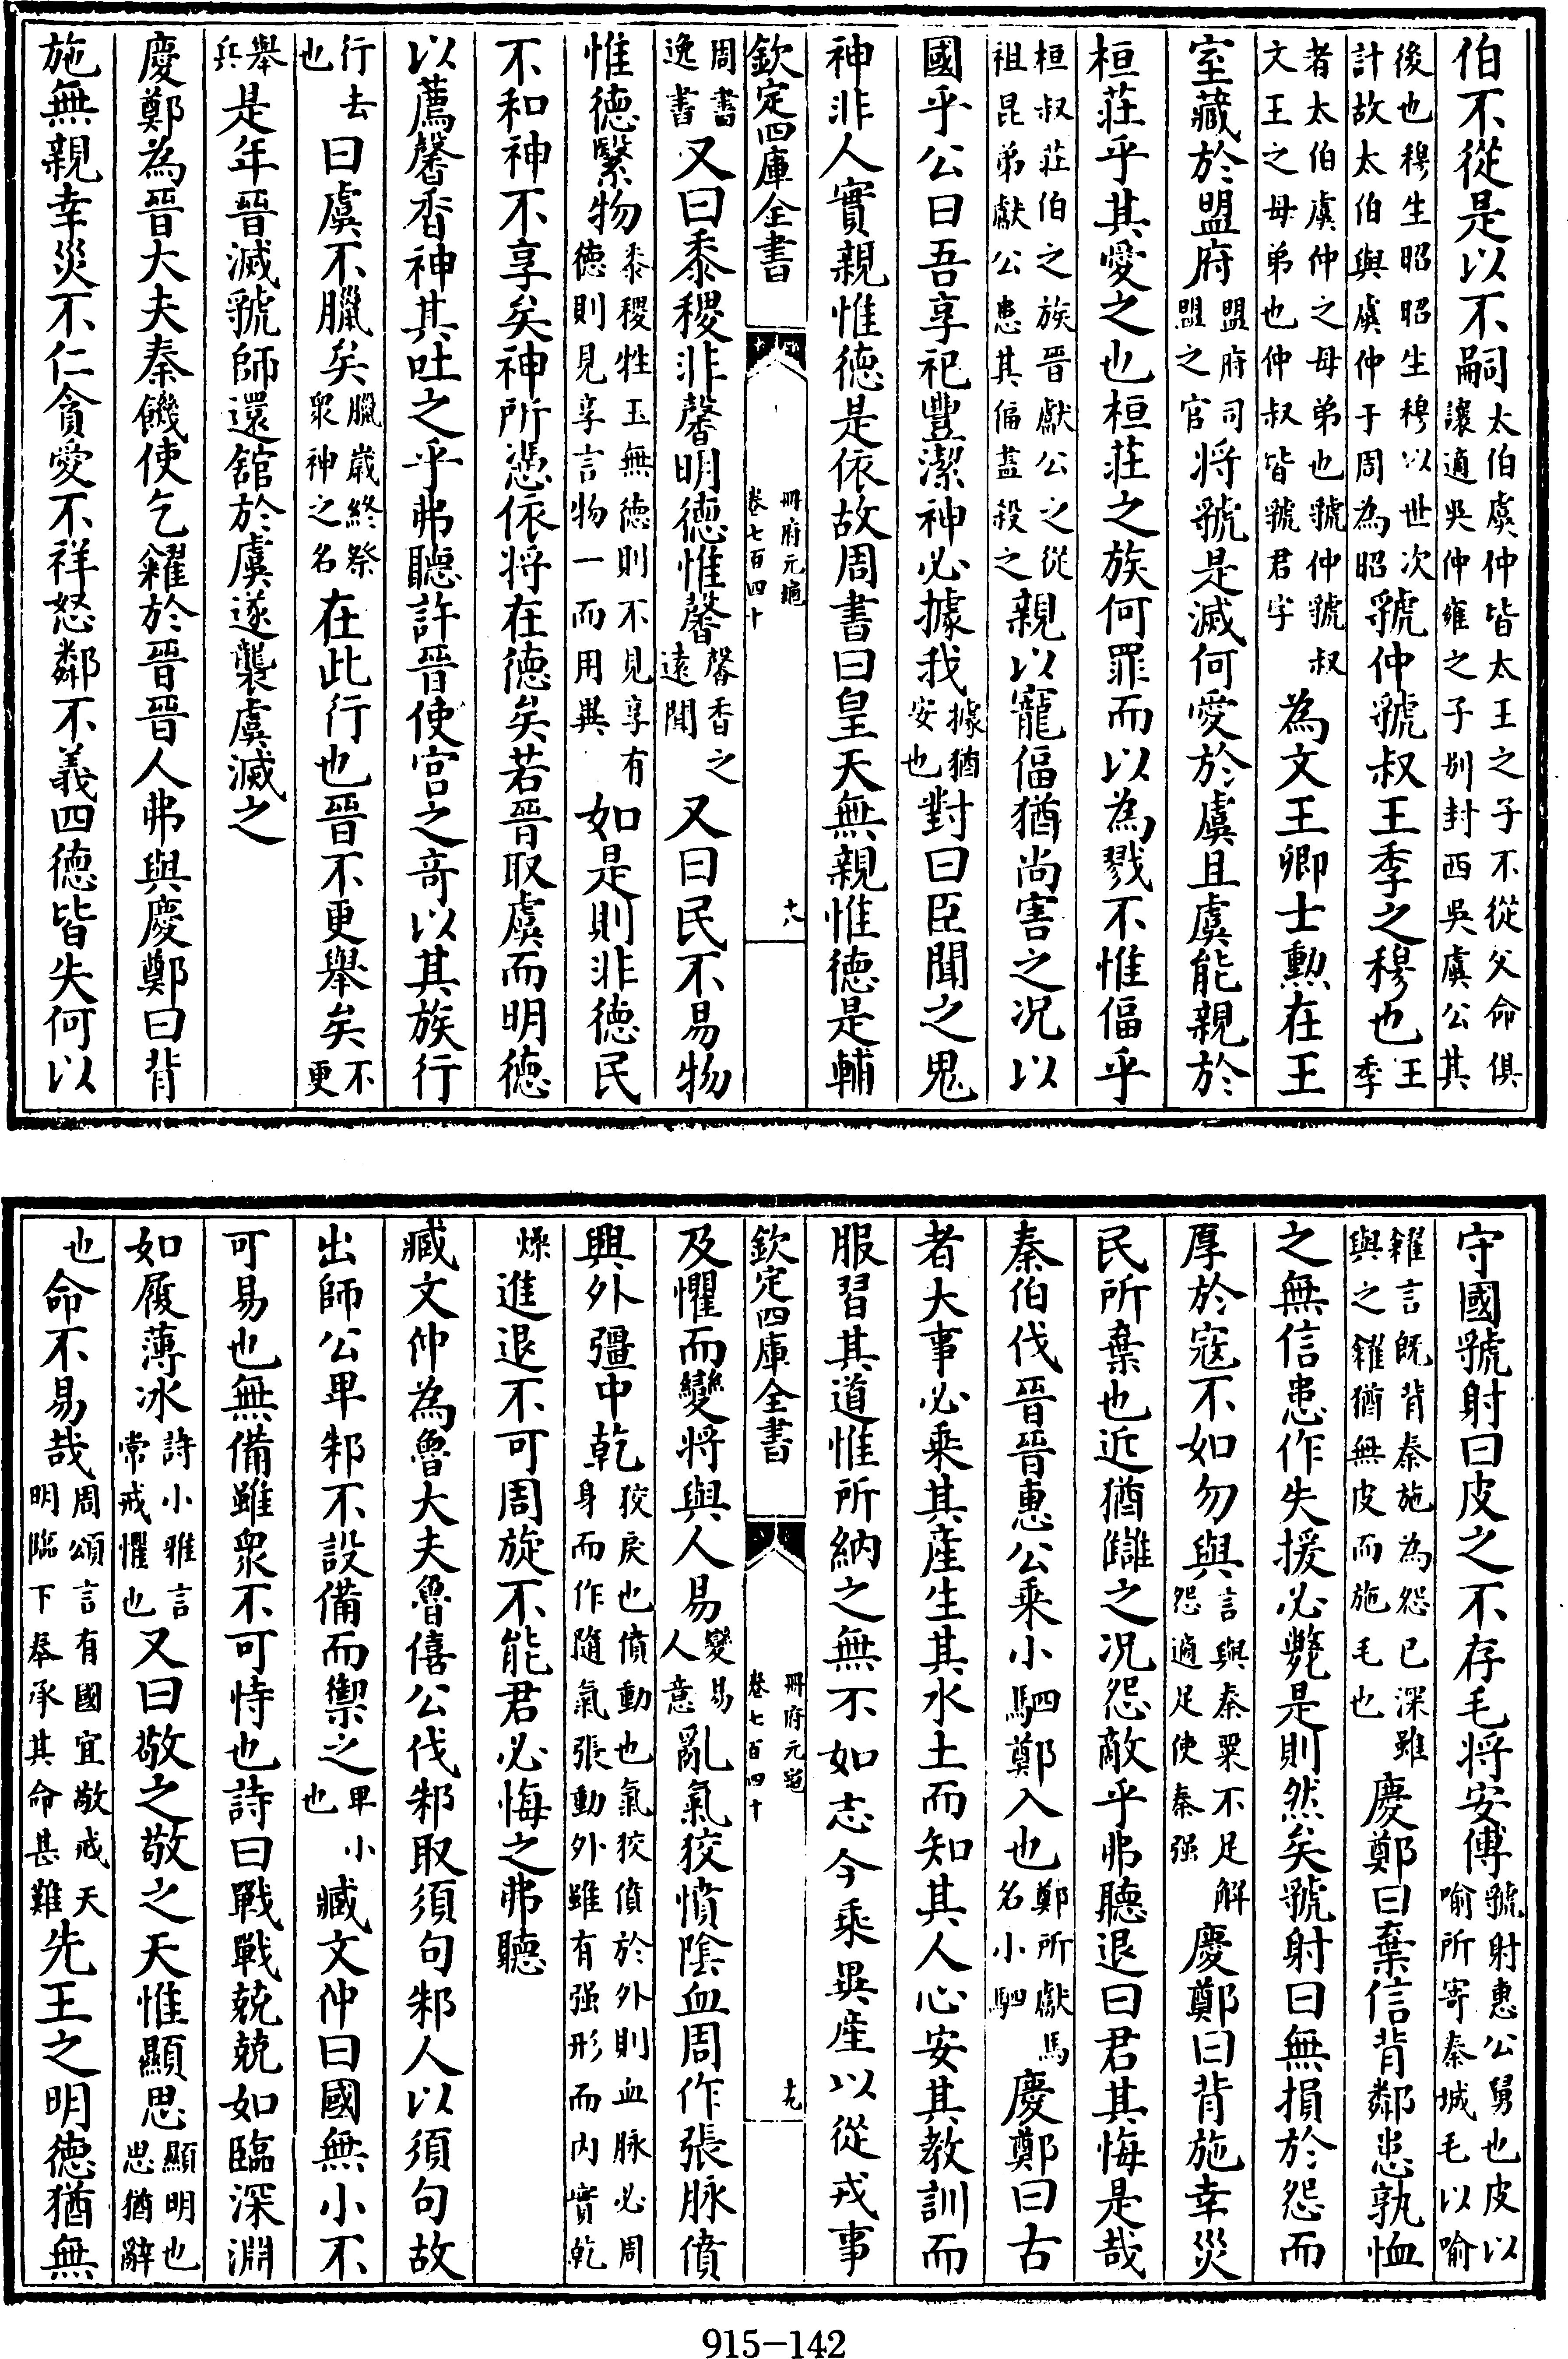 伯不從是以不嗣太伯虞仲皆太王之子不從父命俱讓適吳仲雍之子別封西吳虞公其
後也穆生昭昭生穆以世次計故太伯與虞仲于周為昭虢仲虢叔王季之穆也王季
者太伯虞仲之母弟也虢仲虢叔文王之母弟也仲叔皆虢君字為文王卿士勲在王
室藏於盟府盟府司盟之官將虢是滅何愛於虞且虞能親於
桓莊乎其愛之也桓莊之族何罪而以為戮不惟偪乎
桓叔莊伯之族晉獻公之從祖昆弟獻公患其偪盡殺之親以寵偪猶尚害之况以
國乎公曰吾享祀豐潔神必據我據猶安也對曰臣聞之鬼
神非人實親惟德是依故周書曰皇天無親惟德是輔
欽定四庫全書 冊府元龜卷七百四十 十八
周書逸書又曰黍稷非馨明德惟馨馨香之遠聞又曰民不易物
惟德繄物黍稷牲玉無德則不見享有德則見享言物一而用異如是則非德民
不和神不享矣神所憑依將在德矣若晉取虞而明德
以薦馨香神其吐之乎弗聽許晉使宫之奇以其族行
行去也曰虞不臘矣臘歲終祭衆神之名在此行也晉不更舉矣不更
舉兵是年晉滅虢師還舘於虞遂襲虞滅之
慶鄭為晉大夫秦饑使乞糴於晉晉人弗與慶鄭曰背
施無親幸災不仁貪愛不祥怒鄰不義四德皆失何以
守國虢射曰皮之不存毛將安傅虢射惠公舅也皮以喻所寄秦城毛以喻
糴言既背秦施為怨已深雖與之糴猶無皮而施毛也慶鄭曰棄信背鄰患孰恤
之無信患作失援必斃是則然矣虢射曰無損於怨而
厚於寇不如勿與言與秦粟不足解怨適足使秦强慶鄭曰背施幸災
民所棄也近猶讎之况怨敵乎弗聽退曰君其悔是哉
秦伯伐晉晉惠公乘小駟鄭入也鄭所獻馬名小駟慶鄭曰古
者大事必乘其産生其水土而知其人心安其教訓而
服習其道惟所納之無不如志今乘異産以從戎事
欽定四庫全書 冊府元龜卷七百四十 十九
及懼而變將與人易變易人意亂氣狡憤陰血周作張脉僨
興外彊中乾狡戾也僨動也氣狡僨於外則血脉必周身而作隨氣張動外雖有强形而内實乾
燥進退不可周旋不能君必悔之弗聽
臧文仲為魯大夫魯僖公伐邾取須句邾人以須句故
出師公卑邾不設備而禦之卑小也臧文仲曰國無小不
可易也無備雖衆不可恃也詩曰戰戰兢兢如臨深淵
如履薄冰詩小雅言常戒懼也又曰敬之敬之天惟顯思顯明也思猶辭
也命不易哉周頌言有國宜敬戒天明臨下奉承其命甚難先王之明德猶無
915-142